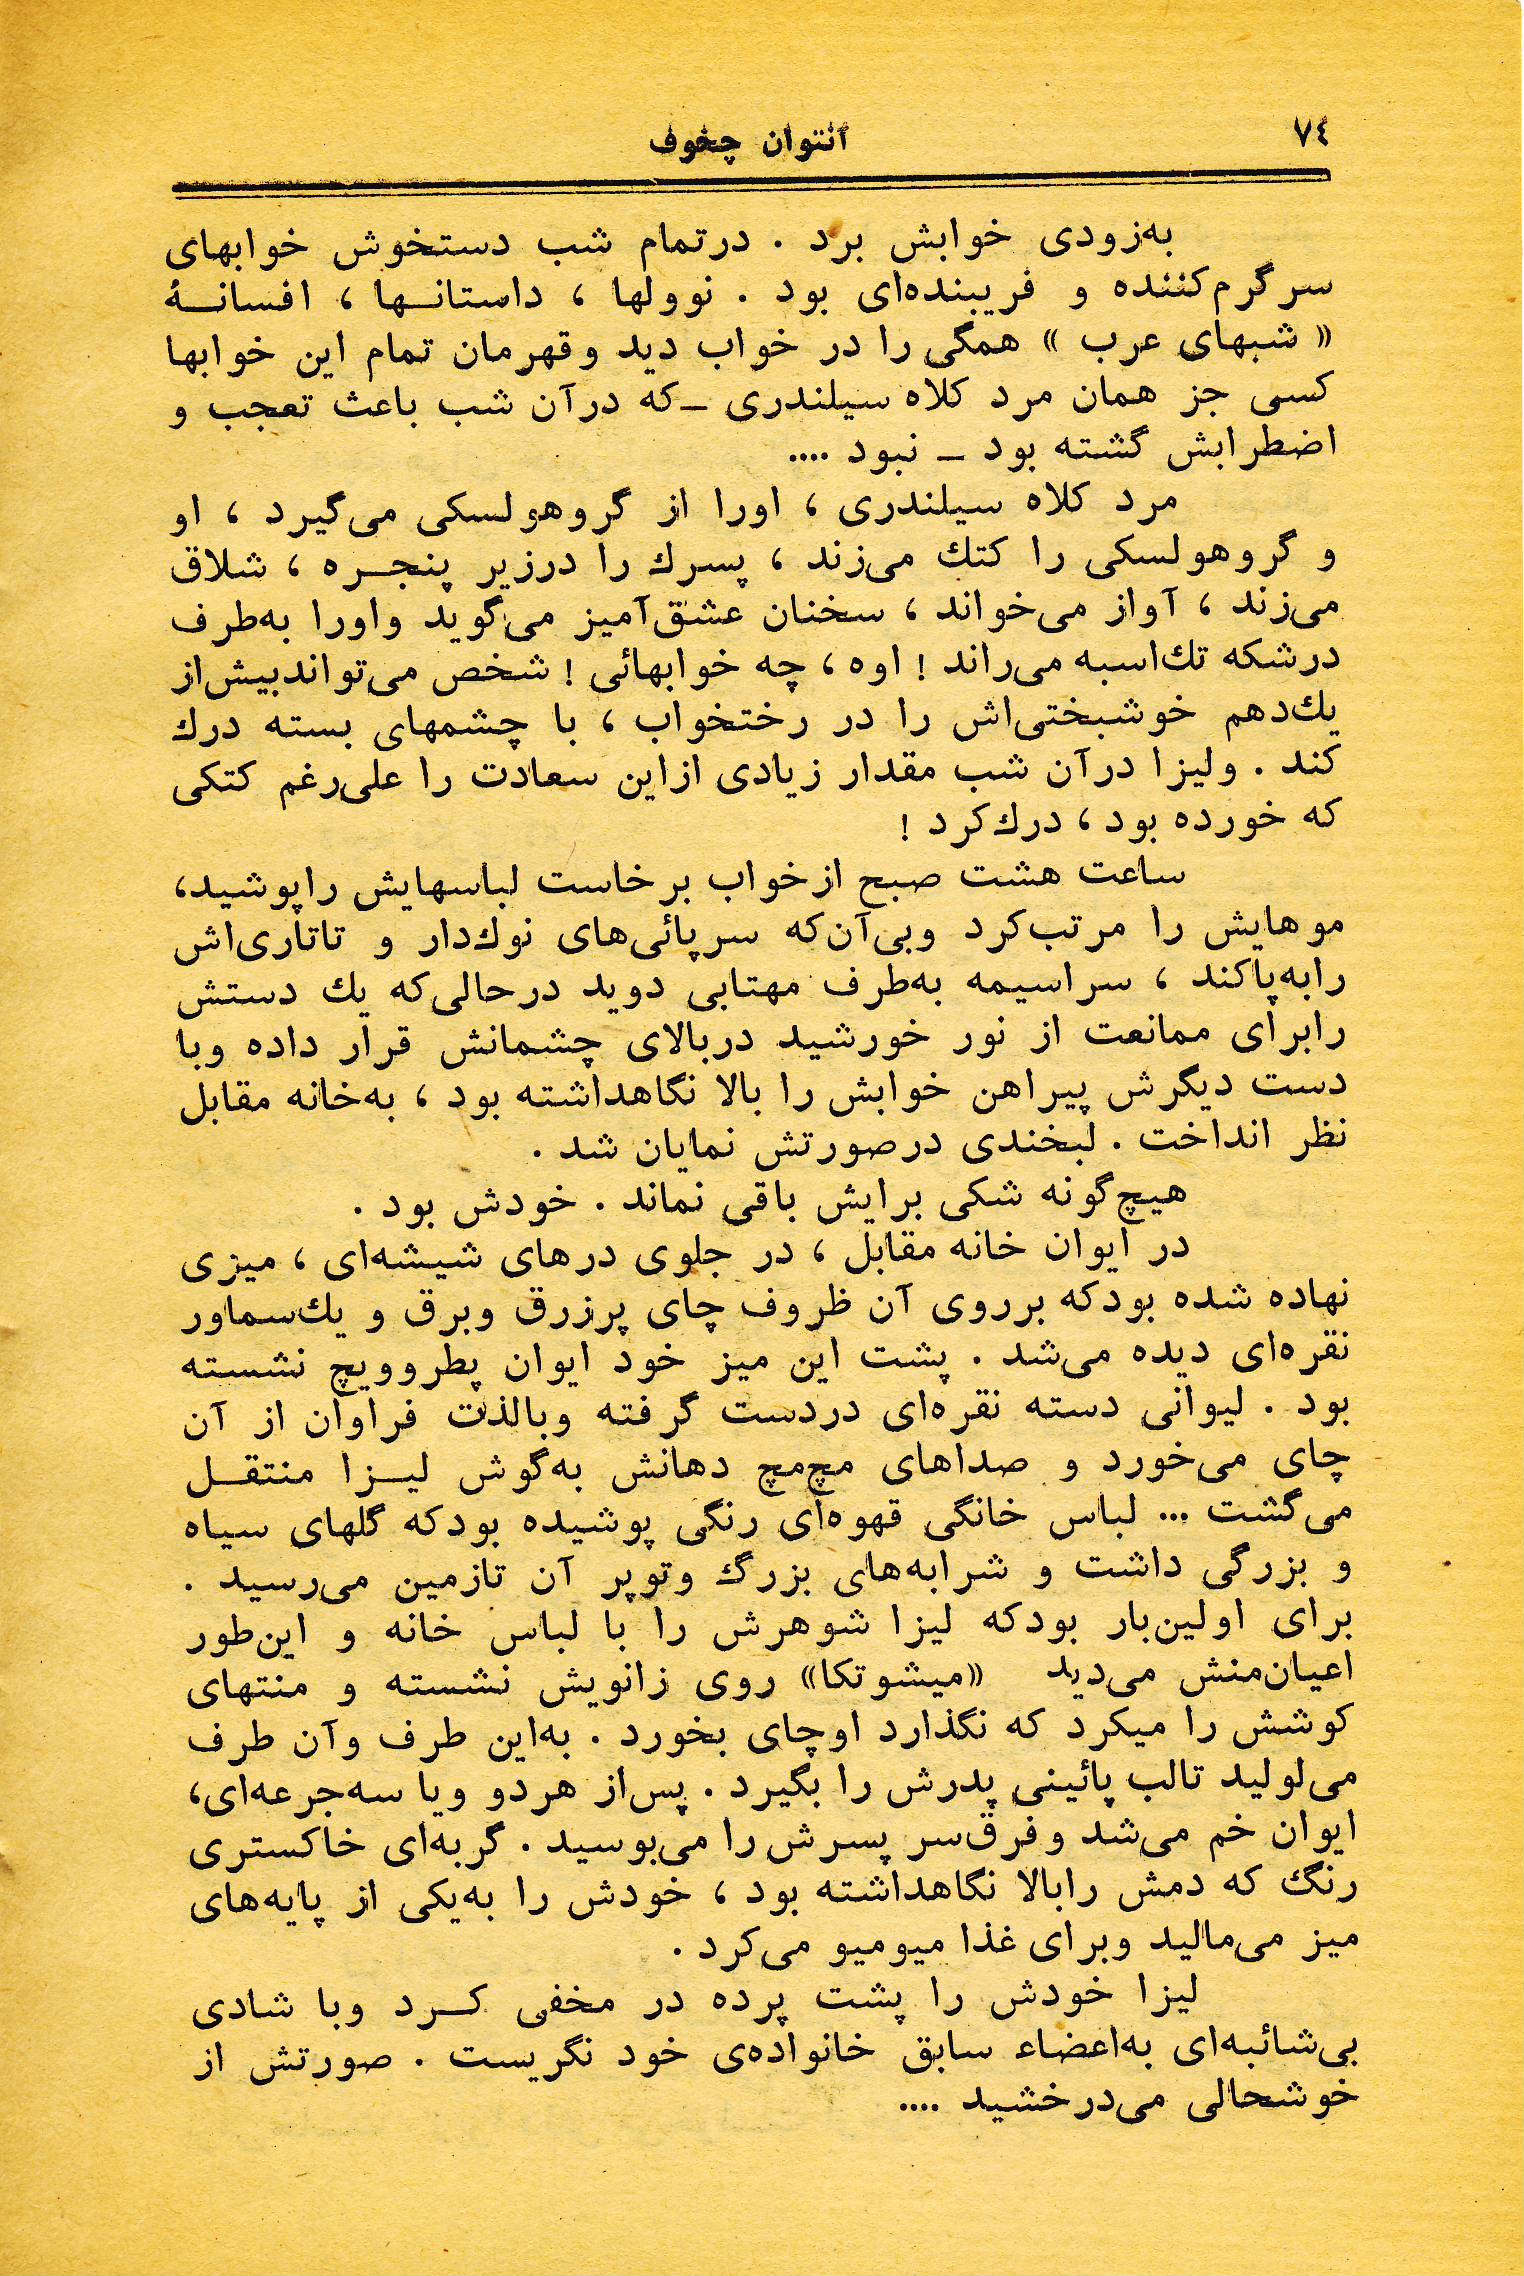 ۷٤
آنتوان چخوف
به‌زودی خوابش برد . درتمام شب دستخوش خوابهای
سرگرم‌کننده و فریبنده‌ای بود . نوولها ، داستانـها ، افسانـهٔ
« شبهای عرب » همگی را در خواب دید وقهرمان تمام این خوابها
کسی جز همان مرد کلاه سیلندری ـ‌که درآن شب باعث تعجب و
اضطرابش گشته بود ـ نبود ....
مرد کلاه سیلندری ، اورا از گروهولسکی می‌گیرد ، او
و گروهولسکی را کتك می‌زند ، پسرك را درزیر پنجـره ، شلاق
می‌زند ، آواز می‌خواند ، سخنان عشق‌آمیز می‌گوید واورا به‌طرف
درشکه تك‌اسبه می‌راند ! اوه ، چه خوابهائی ! شخص می‌تواندبیش‌از
یك‌دهم خوشبختی‌اش را در رختخواب ، با چشمهای بسته درك
کند . ولیزا درآن شب مقدار زیادی ازاین سعادت را علی‌رغم کتکی
که خورده بود ، درك‌کرد !
ساعت هشت صبح ازخواب برخاست لباسهایش راپوشید،
موهایش را مرتب‌کرد وبی‌آن‌که سرپائی‌های نوك‌دار و تاتاری‌اش
رابه‌پاکند ، سراسیمه به‌طرف مهتابی دوید درحالی‌که یك دستش
رابرای ممانعت از نور خورشید دربالای چشمانش قرار داده وبا
دست دیگرش پیراهن خوابش را بالا نگاهداشته بود ، به‌خانه مقابل
نظر انداخت . لبخندی درصورتش نمایان شد .
هیچ‌گونه شکی برایش باقی نماند . خودش بود .
در ایوان خانه مقابل ، در جلوی درهای شیشه‌ای ، میزی
نهاده شده بودکه برروی آن ظروف چای پرزرق وبرق و یك‌سماور
نقره‌ای دیده می‌شد . پشت این میز خود ایوان پطروویچ نشسته
بود . لیوانی دسته نقره‌ای دردست گرفته وبالذت فراوان از آن
چای می‌خورد و صداهای مچ‌مچ دهانش به‌گوش لیـزا منتقـل
می‌گشت ... لباس خانگی قهوه‌ای رنگی پوشیده بودکه گلهای سیاه
و بزرگی داشت و شرابه‌های بزرگ وتوپر آن تازمین می‌رسید .
برای اولین‌بار بودکه لیزا شوهرش را با لباس خانه و این‌طور
اعیان‌منش می‌دید «میشوتکا» روی زانویش نشسته و منتهای
کوشش را میکرد که نگذارد اوچای بخورد . به‌این طرف وآن طرف
می‌لولید تالب پائینی پدرش را بگیرد . پس‌از هردو ویا سه‌جرعه‌ای،
ایوان خم می‌شد وفرق‌سر پسرش را می‌بوسید . گربه‌ای خاکستری
رنگ که دمش رابالا نگاهداشته بود ، خودش را به‌یکی از پایه‌های
میز می‌مالید وبرای غذا میومیو می‌کرد .
لیزا خودش را پشت پرده در مخفی کـرد وبا شادی
بی‌شائبه‌ای به‌اعضاء سابق خانواده‌ی خود نگریست . صورتش از
خوشحالی می‌درخشید ....